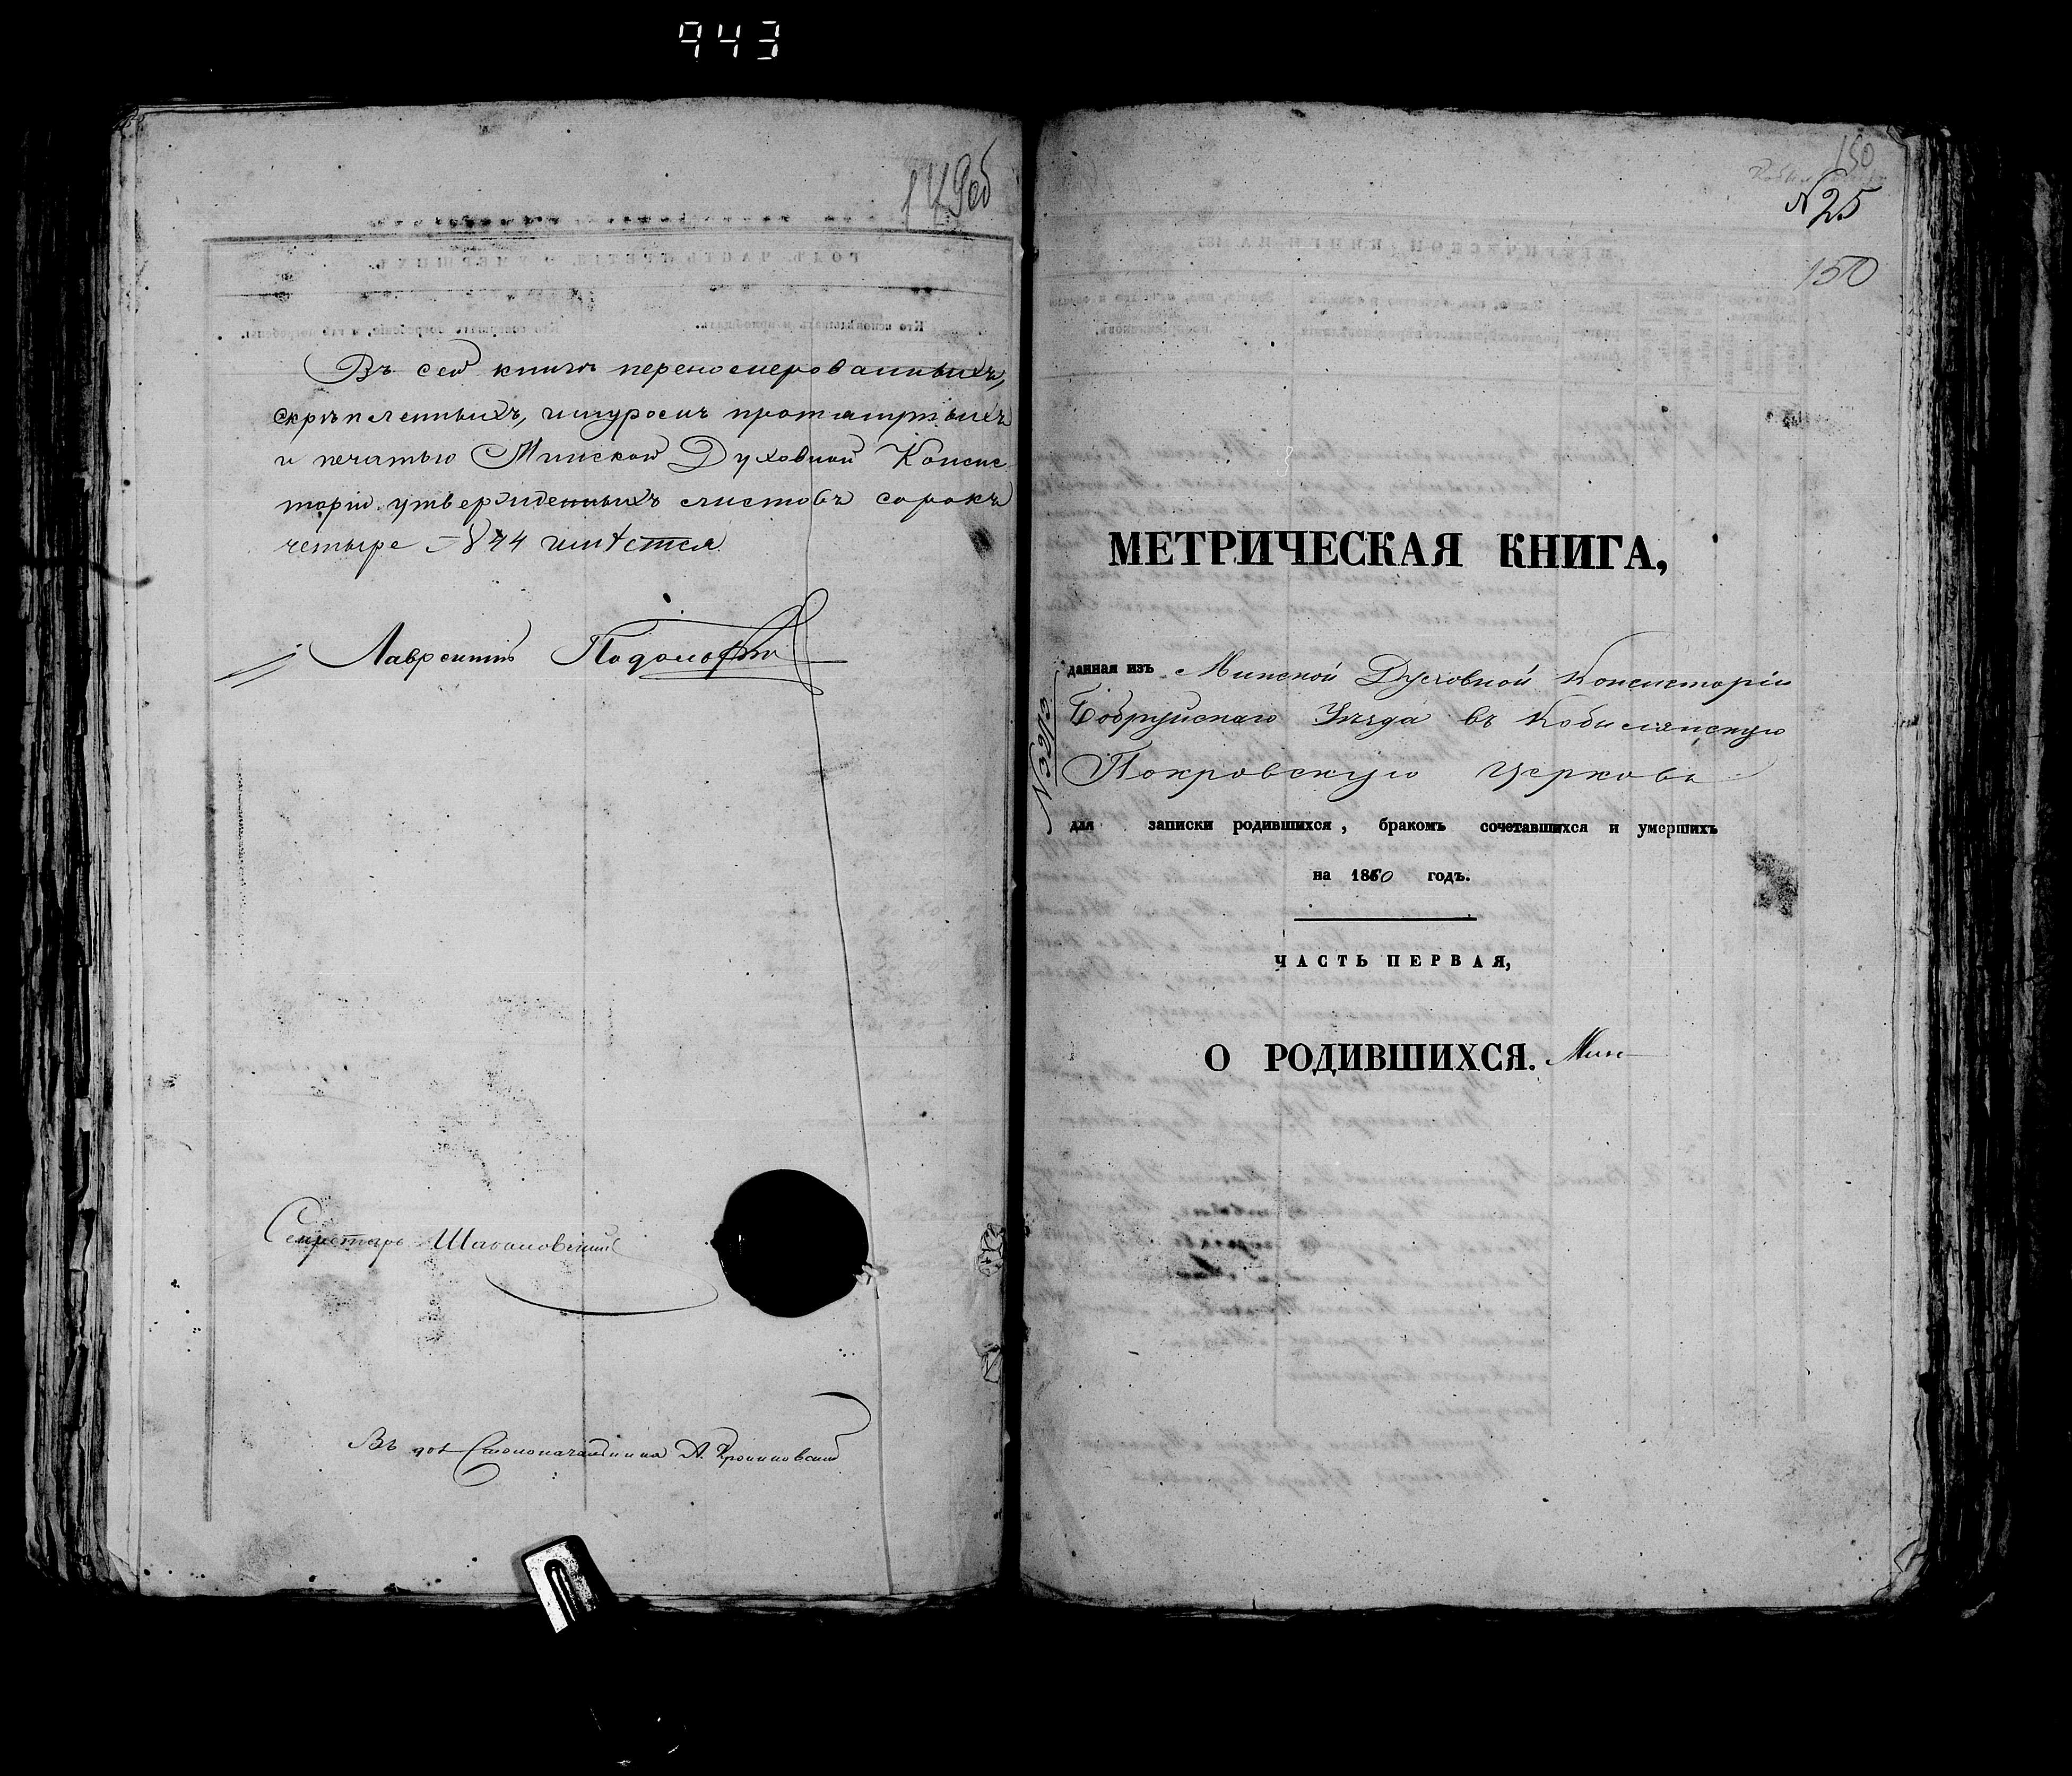 943
149об
Въ сей книгѣ переномерованныхъ,
скрѣпленныхъ, шнуромъ протянутыхъ
и печатью Минской Духовной Консис
торіи утвержденныхъ листовъ сорокъ
четыре – 44 имѣется.
Лаврентій
Секретарь
Въ дол. Столоначальника А.
150
№ 25
150
МЕТРИЧЕСКАЯ КНИГА,
данная изъ Минской Духовной Консисторіи
Бобруйскаго Уѣзда въ Кобылянскую
Покровскую церковь
для записки родившихся, бракомъ сочетавшихся и умершихъ
на 1860 годъ.
ЧАСТЬ ПЕРВАЯ,
О РОДИВШИХСЯ. Мин